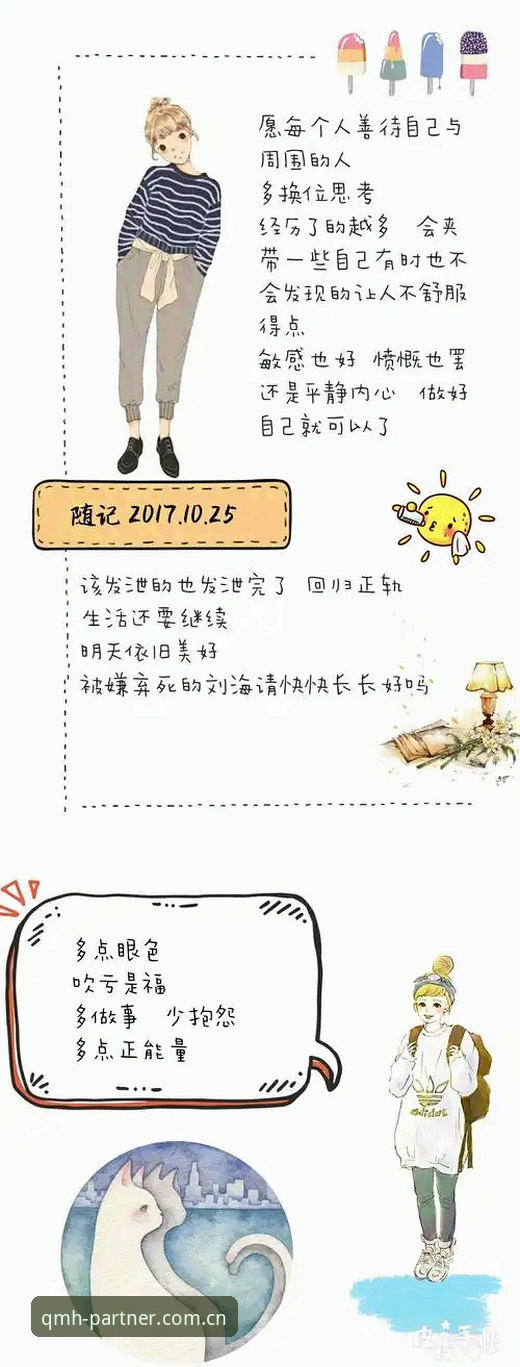 愿每个人善待自己与
周围的人
多换位思考
经历了的越多 会夹
带一些自己有时也不
会发现的让人不舒服
得点
敏感也好 愤慨也罢
还是平静内心 做好
自己就可以了
随记 2017.10.25
该发泄的也发泄完了 回归正轨
生活还要继续
明天依旧美好
被嫌弃死的刘海请快快长长好吗
多点眼色
吹亏是福
多做事 少抱怨
多点正能量
adidas
qmh-partner.com.cn